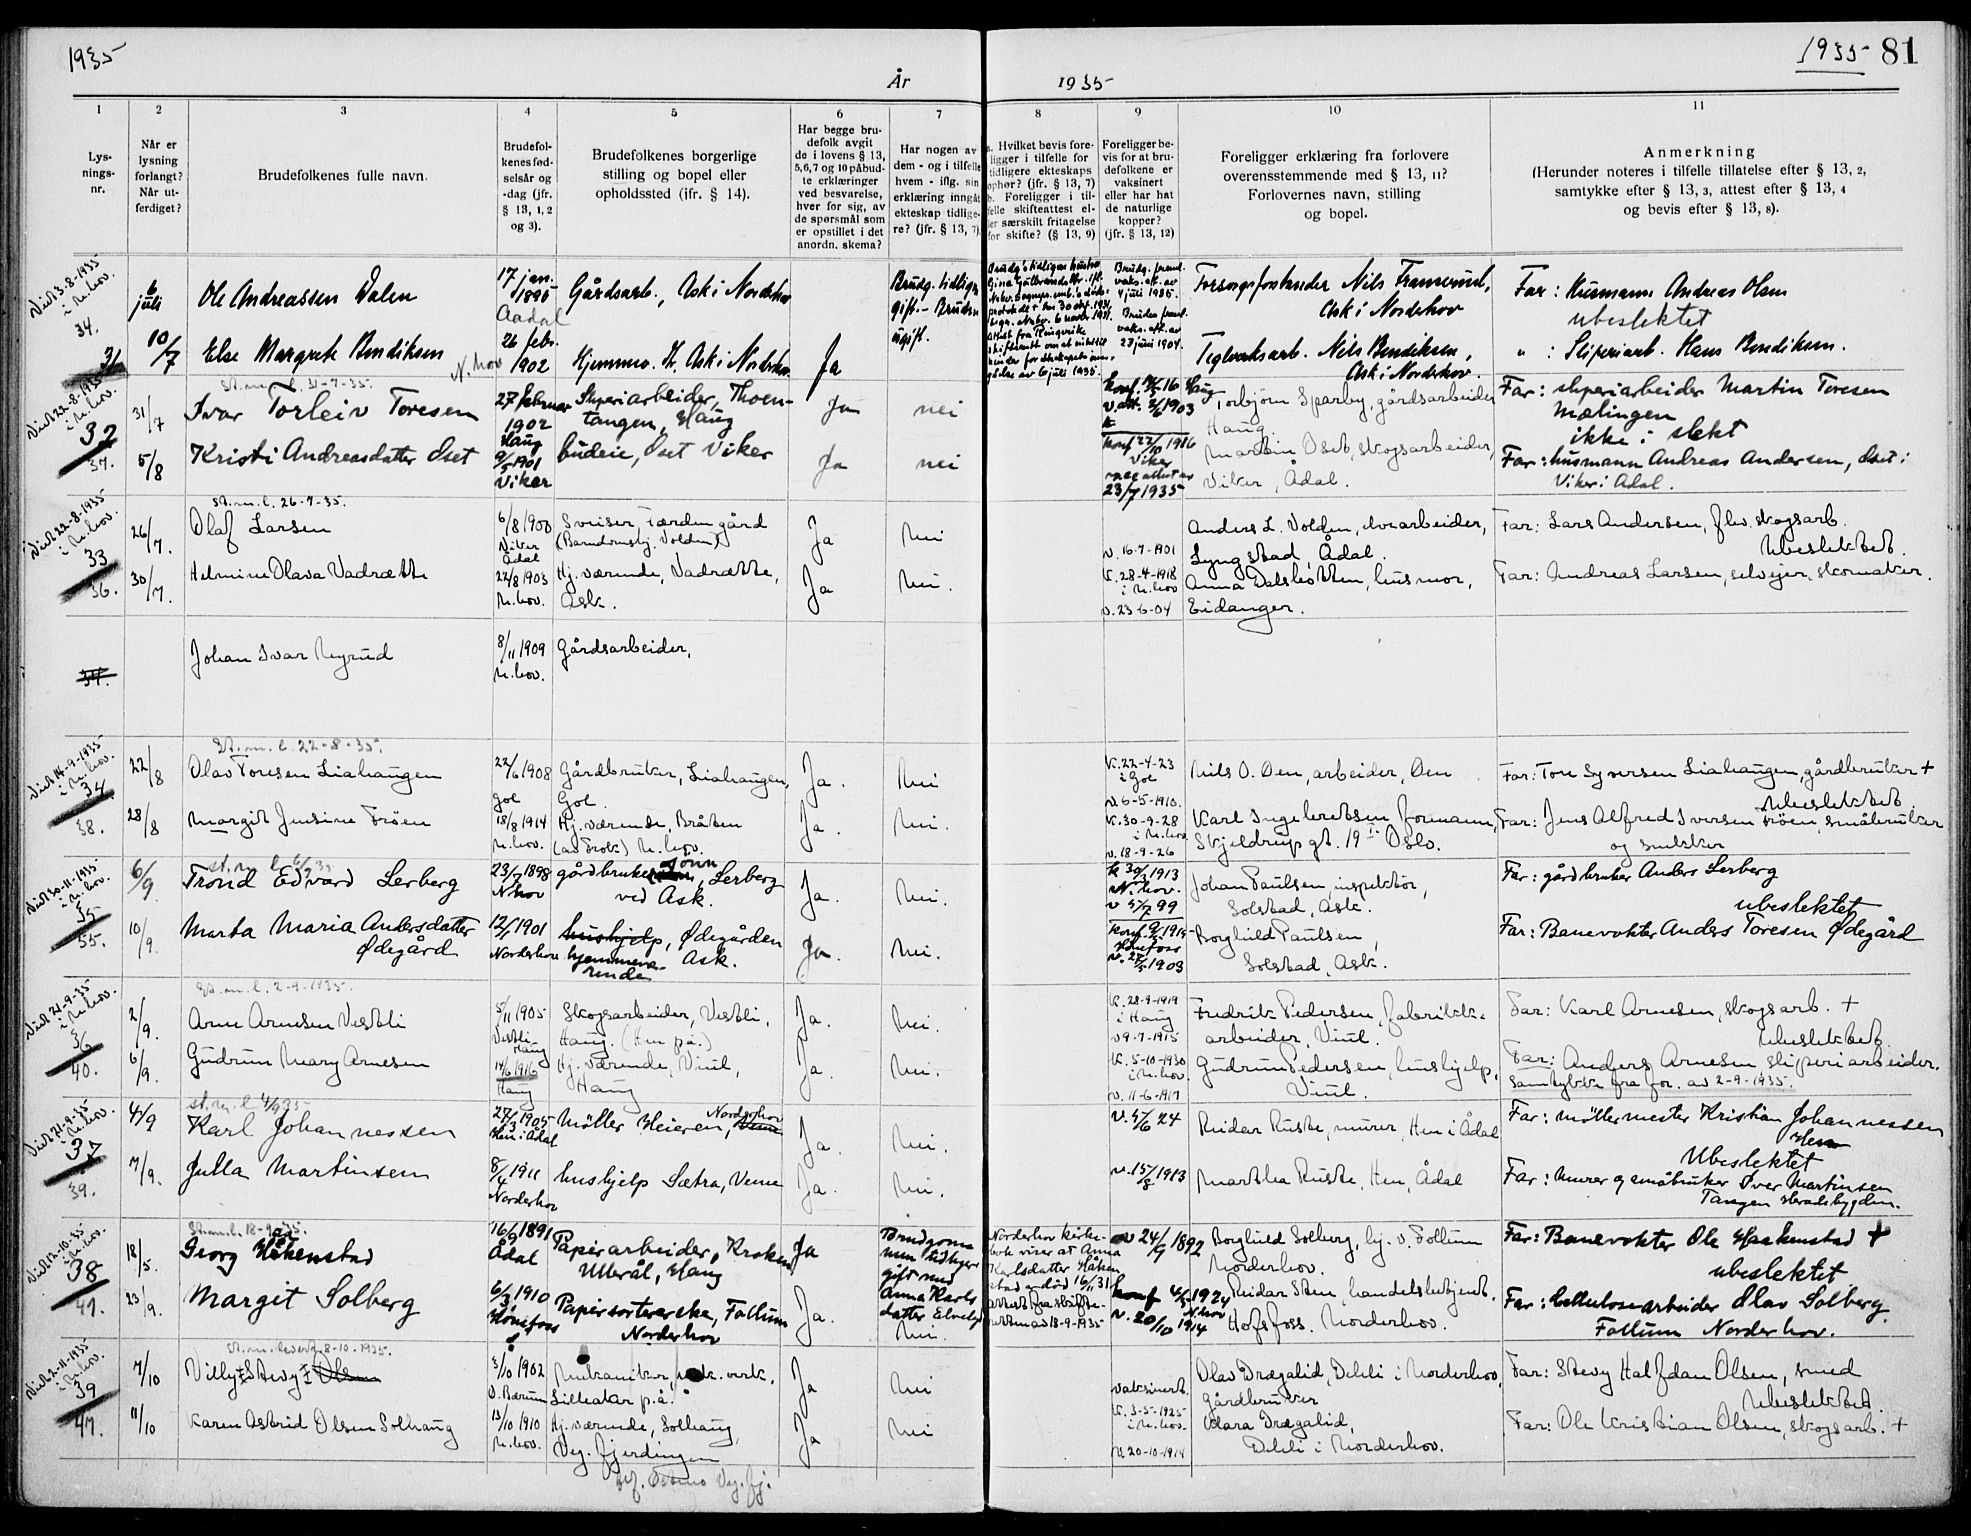 1935
1935 81
År 1935
1
Lys-
nings-
nr.
2
Når er
lysning
forlangt?
Når ut-
ferdiget?
3
Brudefolkenes fulle navn.
4
Brudefol-
kenes fød-
selsår og
-dag (jfr.
§ 13, 1, 2
og 3).
5
Brudefolkenes borgerlige
stilling og bopel eller
opholdssted (ifr. § 14).
6
Har begge bru-
defolk avgit
de i lovens § 13,
5,6,7 og 10 påbud-
te erklæringer
ved besvarelse,
hver for sig, av
de spørsmål som
er opstillet i det
anordn. skema?
7
Har nogen av
dem - og i tilfelle
hvem - iflg. sin
erklæring inngått
ekteskap tidlige-
re? (jfr. § 13, 7)
8
a. Hvilket bevis fore-
ligger i tilfelle for
tidligere ekteskaps
ophør? (jfr. § 13, 7)
b. Foreligger i til-
felle skifteattest el-
ler særskilt fritagelse
for skifte? (§ 13, 9)
9
Foreligger be-
vis for at bru-
defolkene er
vaksinert
eller har hat
de naturlige
kopper?
(jfr. § 13, 12)
10
Foreligger erklæring fra forlovere
overensstemmende med § 13, 11?
Forlovernes navn, stilling
og bopel.
11
Anmerkning
(Herunder noteres i tilfelle tillatelse efter § 13, 2,
samtykke efter § 13, 3, attest efter § 13, 4
og bevis efter § 13, 8).
Viet 3-8-1935
i N.hov.
34.
31
6
juli
Ole Andreassen Dalen
17 jan.
1895
Aadal
Gårdsarb., Ask i Norderhov
Brudg. tidligere
gift. - Bruden
ugift.
Brudg. freml.
vaks.att. av
4 juli 1935.
Forsorgsforstander Nils Framerud,
Ask i Norderhov
Far: Husmann Andreas Olsen
ubeslektet
10/7
Else Margrete Bendiksen
N.hov
26 febr.
1902
Hjemmev. H. Ask i Norderhov
Ja
Bruden freml.
vaks.att. av
23 juni 1904.
Teglverksarb. Nils Bendiksen,
Ask i Norderhov.
" : Sliperiarb. Hans Bendiksen.
Viet 22-8-1935
i N.hov.
32
37.
St.m.l. 31-7-35.
31/7
Ivar Torleiv Toresen
27 februar
1902
Haug
Sliperiarbeider, Thoen-
tangen, Haug
Ja
nei
Torbjørn Sparby, gårdsarbeider
Haug.
Far: sliperiarbeider Martin Toresen
Mælingen
ikke i slekt
5/8
Kristi Andreasdatter Oset
9/5 1901
Viker
budeie, Oset Viker
Ja
nei
konf 22/10 1916
Viker
vacc attest av
23/7 1935
Martin Oset, skogsarbeider,
Viker, Ådal.
Far: husmann Andreas Andersen, Oset i
Viker i Ådal.
Viet 22-8-1935
i N.hov.
33
36.
St.m.l. 26-7-35.
26/7.
Olaf Larsen
6/8 1900
Viker
Ådal
Sveiser, Færden gård
(Barndomshj. Volden)
Ja
Nei
v. 16-7-1901
Anders L. Volden, elvearbeider,
Lyngstad, Ådal.
Far: Lars Andersen, flv. skogsarb.
Ubeslektet.
30/7.
Helmine Olava Vadrætte
22/8 1903
N.hov.
Hj. værende, Vadrætte,
Ask.
Ja
Nei.
K. 28-4-1918
i N.hov
v. 23-6-04
Anna Dalsbotten, husmor,
Eidanger.
Far: Andreas Larsen, selveier, skomaker.
34.
Johan Ivar Myrud
8/11 1909
N.hov.
Gårdsarbeider,
Viet 14-9-1935
i N.hov.
34.
38.
St.m.l. 22-8-35.
22/8
Olav Toresen Liahaugen
22/6 1908
Gol
Gårdbruker, Liahaugen,
Gol.
Ja.
Nei
K. 22-4-23
i Gol
v. 6-5-1910.
Nils O. Øen, arbeider, Øen
Far: Tore Syversen Liahaugen, gårdbruker +
Ubeslektet
28/8
Margit Jensine Frøen
18/8 1914
N.hov.
Hj. værende, Bråten
N.hov.
Ja.
Nei.
K. 30-9-28
i N.hov
v. 18-9-26
Karl Ingebretsen formann,
Skjeldrups gt. 19 I Oslo.
Far: Jens Alfred Iversen Frøen, småbruker
og snekker
Viet 30-11-1935
i N.hov.
35
55.
st.m.l 6/9 35
6/9.
Trond Edvard Lerberg
23/7 1898
N.hov
gårdbrukersønn, Lerberg
ved Ask.
Ja.
Nei.
N.hov.
Johan Paulsen, inspektør,
Solstad, Ask.
Far: gårdbruker Anders Lerberg
ubeslektet
10/9.
Marta Maria Andersdatter
Ødegård
12/1 1901
Norderhov
hushjelp, Ødegården
hjemmevæ- Ask.
rende
Ja.
Nei.
Hønefoss
Borghild Paulsen,
Solstad, Ask.
Far: Banevokter Anders Toresen Ødegård
Viet 21-9-35
i N.hov.
36
40.
St.m.l. 2-9-1935.
2/9.
Arne Arnesen Vestli
5/11 1905
Vestli
Haug
Skogsarbeider, Vestli,
Haug. (Hen på.)
Ja.
Nei.
K. 28-9-1919
i Haug
v 9-7-1915
Fredrik Pedersen, fabrikk-
arbeider, Viul.
Far: Karl Arnesen, skogsarb. +
Ubeslektet.
6/9.
Gudrun Mary Arnesen
14/6 1916
Haug
Hj. værende, Viul,
Haug
Ja.
Nei.
K. 5-10-1930
i N.hov.
v. 11-6-1917
Gudrun Pedersen, hushjelp,
Viul.
Far: Anders Arnesen sliperiarbeider.
Samtykke fra for. av 2-9-1935.
Viet 21-9-35
i N.hov.
37
39.
st.m.l 4/9 35
4/9
Karl Johannessen
27/3 1905
Hen i Ådal
Møller Heieren, Norderhov
Ja.
Nei.
v. 5/6 24
Reidar Ruste, murer, Hen i Ådal
Far: møllermester Kristian Johannessen
Hen
Ubeslektet
7/9.
Julla Martinsen
8/4 1911
Norderhov
hushjelp Sætra, Veme
Ja.
Nei.
v. 15/8 1913
Martha Ruste, Hen, Ådal
Far: Murer og småbruker Iver Martinsen
Tangen Heradsbygden.
Viet 12-10-35
i N.hov.
38
41.
St.m.l. 18-9-35.
18/5.
Georg Håkenstad
16/9 1891
Ådal
Papirarbeider, Kroken
Ullerål, Haug
Ja
Brudgom-
men tidligere
gift med
Anna Karls-
datter
Norderhov kirke-
bok viser at Anna
Karlsdatter Håken-
stad er død 16/1 31
v 24/9 1892
Borghild Solberg, hj. v. Follum
Norderhov.
Far: Banevokter Ole Haakenstad +
ubeslektet
23/9.
Margit Solberg
6/3 1910
Hønefoss
Papirsortererske, Follum
Norderhov
Ja.
Nei.
konf 4/5 1924
N.hov
v. 20/10 1914
Reidar Sten, handelsbetjent.
Hofsfoss. Norderhov.
Far: Cellulosearbeider Olav Solberg
Follum Norderhov.
Viet 2-11-1935
i N.hov.
39
47.
8-10-1935.
7/10
Villy Stevy Olsen
3/10 1902
V. Bærum
Mekaniker, mek. verk.
Lilleaker p.å.
Ja
Nei
vaksinert.
Olav Drægalid, Dehli i Norderhov,
Gårdbruker
Far: Stevy Halfdan Olsen, smed
Ubeslektet.
11/10
Karen Astrid Olsen Solhaug
13/10 1910
N.hov.
Hj. værende, Solhaug,
Veg. fjerdingen
Ja
Nei
K. 3-5-1925
i N.hov.
v. 20-10-1914
Klara Drægalid,
Dehli i Norderhov.
Far: Ole Kristian Olsen, skogsarb. +